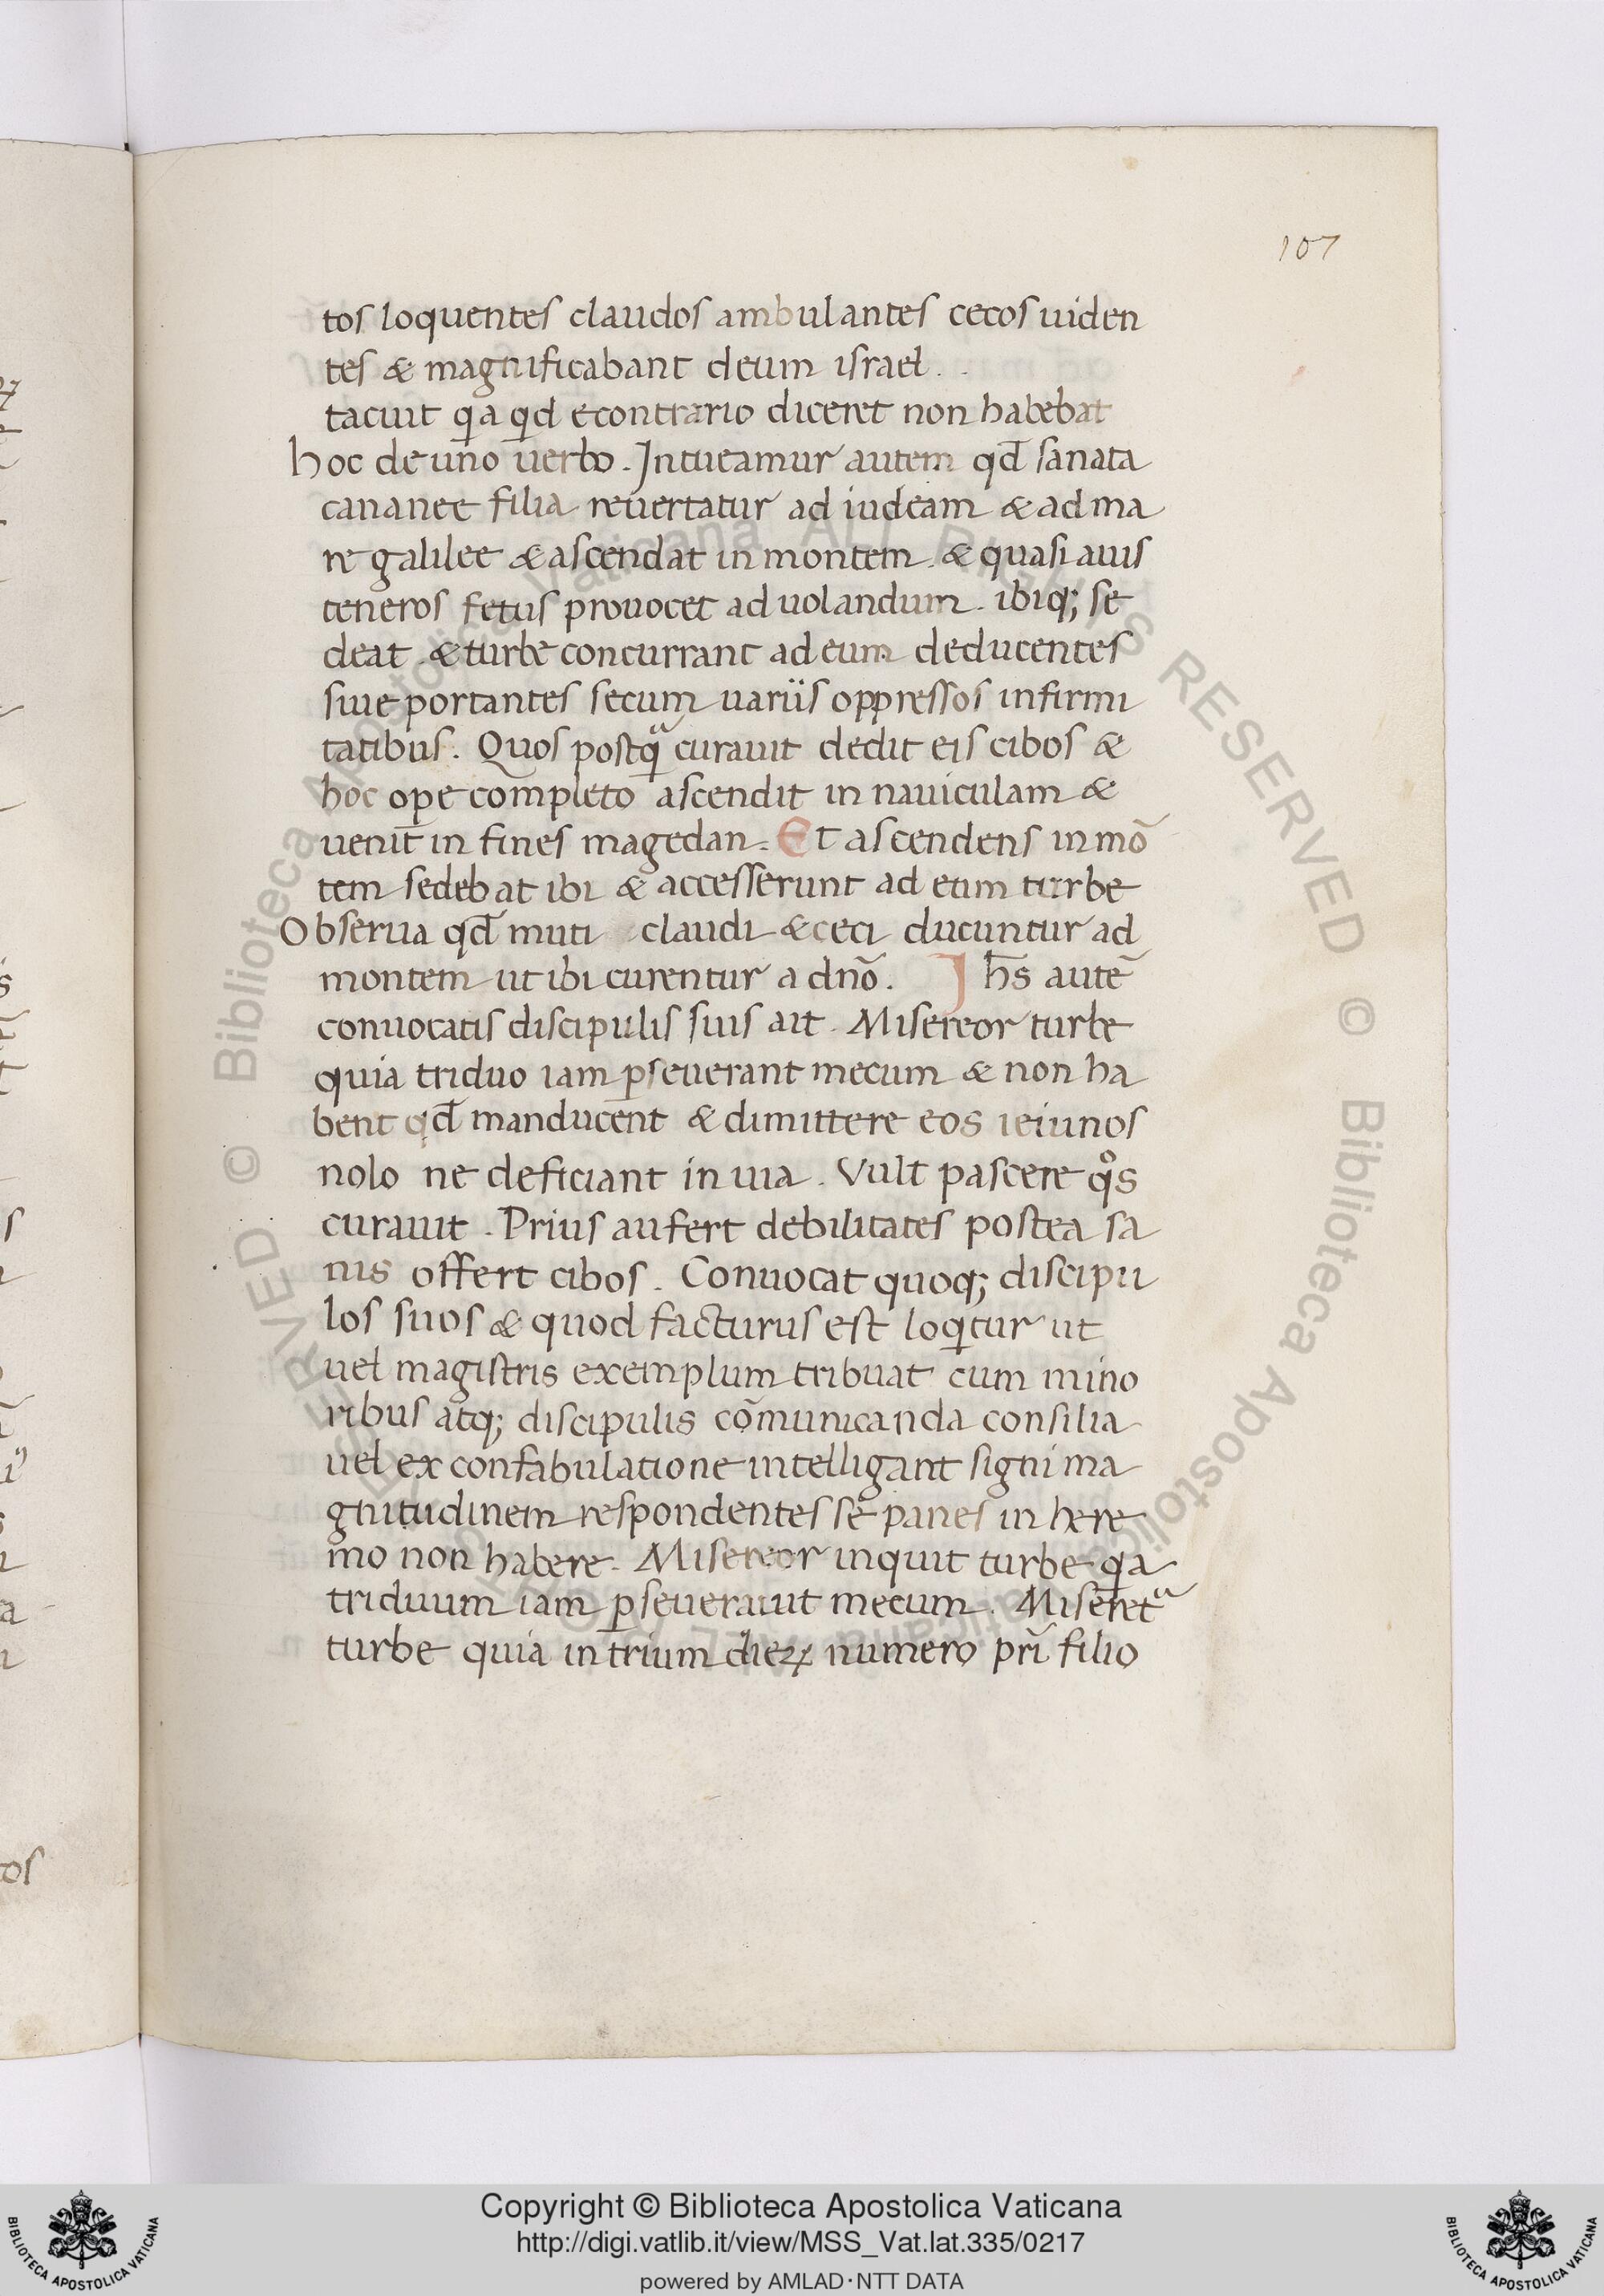 107
tos loquentes claudos ambulantes cecos uiden
tes & magnificabant deum israel.
tacuit qa qd econtrario diceret non habebat
hoc de uno uerbo. Intueamur autem qd̄ sanata
cananee filia reuertatur ad iudeam & ad ma
re galilee & ascendat in montem. & quasi auis
teneros fetus prouocet ad uolandum. ibiq; se
deat. & turbe concurrant ad eum deducentes
siue portantes secum uariis oppressos infirmi
tatibus. Quos postqͣ curauit dedit eis cibos &
hoc ope completo ascendit in nauiculam &
uenit in fines magedan. Et ascendens in mō
tem sedebat ibi & accesserunt ad eum turbe
Obserua qd̄ muti claudi & ceci ducuntur ad
montem ut ibi curentur a dnō. Ihs̄ autē
conuocatis discipulis suis ait. Misereor turbe
quia triduo iam ꝑseuerant mecum & non ha
bent qd̄ manducent & dimittere eos ieiunos
nolo ne deficiant in uia. Vult pascere qͦs
curauit. Prius aufert debilitates postea sa
nis offert cibos. Conuocat quoq; discipu
los suos & quod facturus est loqitur ut
uel magistris exemplum tribuat cum mino
ribus atq; discipulis cōmunicanda consilia
uel ex confabulatione intelligant signi ma
gnitudinem respondentes sē panes in here
mo non habere. Misereor inquit turbe qa
triduum iam ꝑseuerauit mecum. Miseret᷑
turbe quia in trium dieꝝ numero pr̄i filio
os
© Biblioteca Apostolica Vaticana ALL RIGHTS RESERVED © Biblioteca Apostolica Vaticana ALL RIGHTS RESERVED
Copyright © Biblioteca Apostolica Vaticana
http://digi.vatlib.it/view/MSS_Vat.lat.335/0217
powered by AMLAD·NTT DATA
BIBLIOTECA APOSTOLICA VATICANA
BIBLIOTECA APOSTOLICA VATICANA